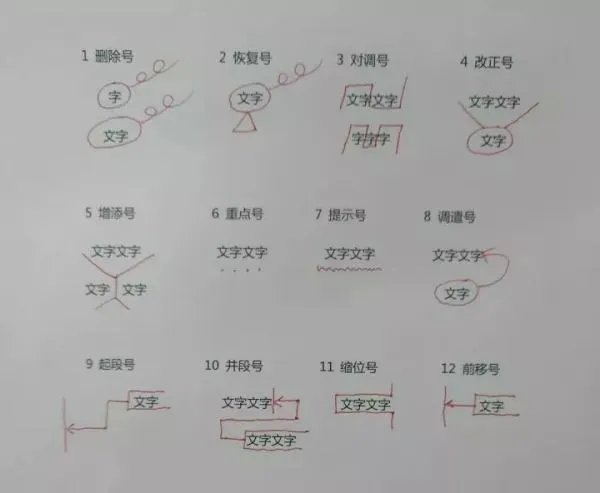 1 删除号 2 恢复号 3 对调号 4 改正号
字 文字 文字文字 文字文字
文字 字字字 文字
5 增添号 6 重点号 7 提示号 8 调遣号
文字文字 文字文字 文字文字 文字文字
文字 文字 文字
9 起段号 10 并段号 11 缩位号 12 前移号
文字 文字文字 文字文字 文字
文字文字